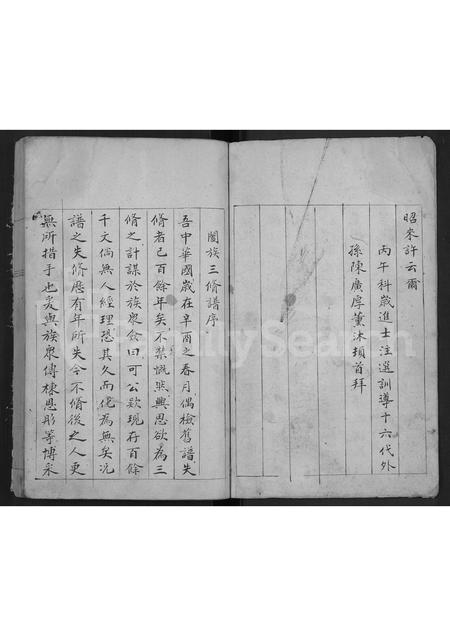 昭來許云爾
丙午科歲進士注選訓導十六代外
孫陳廣厚薰沐頓首拜
闔族三脩譜序
吾中華國歲在辛酉之春月偶檢舊譜失
脩者已百餘年矣不禁慨然興思欲為三
脩之計謀於族衆僉曰可公欵現存百餘
千文倘無人經理恐其久而化為無矣况
譜之失修歷有年所失今不脩後之人更
無所措手也爰與族衆傳棣恩彤等博采
FamilySearch